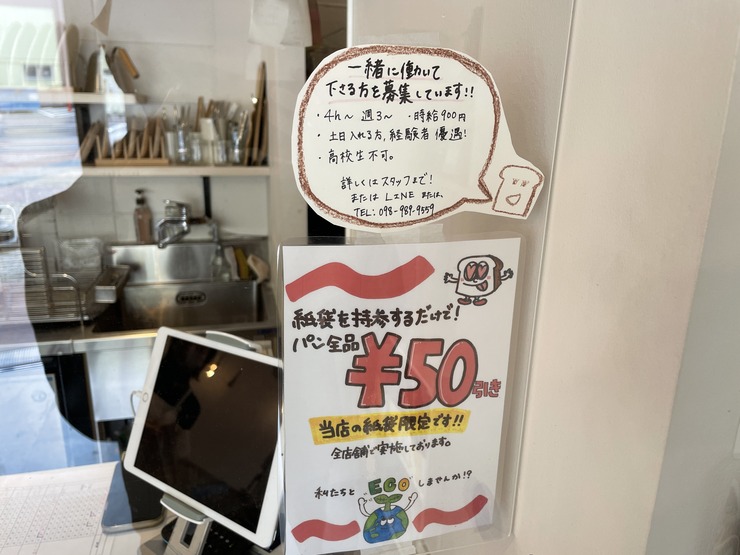 一緒に働いて
下さる方を募集しています!!
・4h〜 週3〜 ・時給900円
・土日入れる方,経験者 優遇!
・高校生不可。
詳しくはスタッフまで!
または LINE または、
TEL:098-989-9559
紙袋を持参するだけで!
パン全品
¥50引き
当店の紙袋限定です!!
全店舗で実施しております。
私たちと ECO しませんか!?